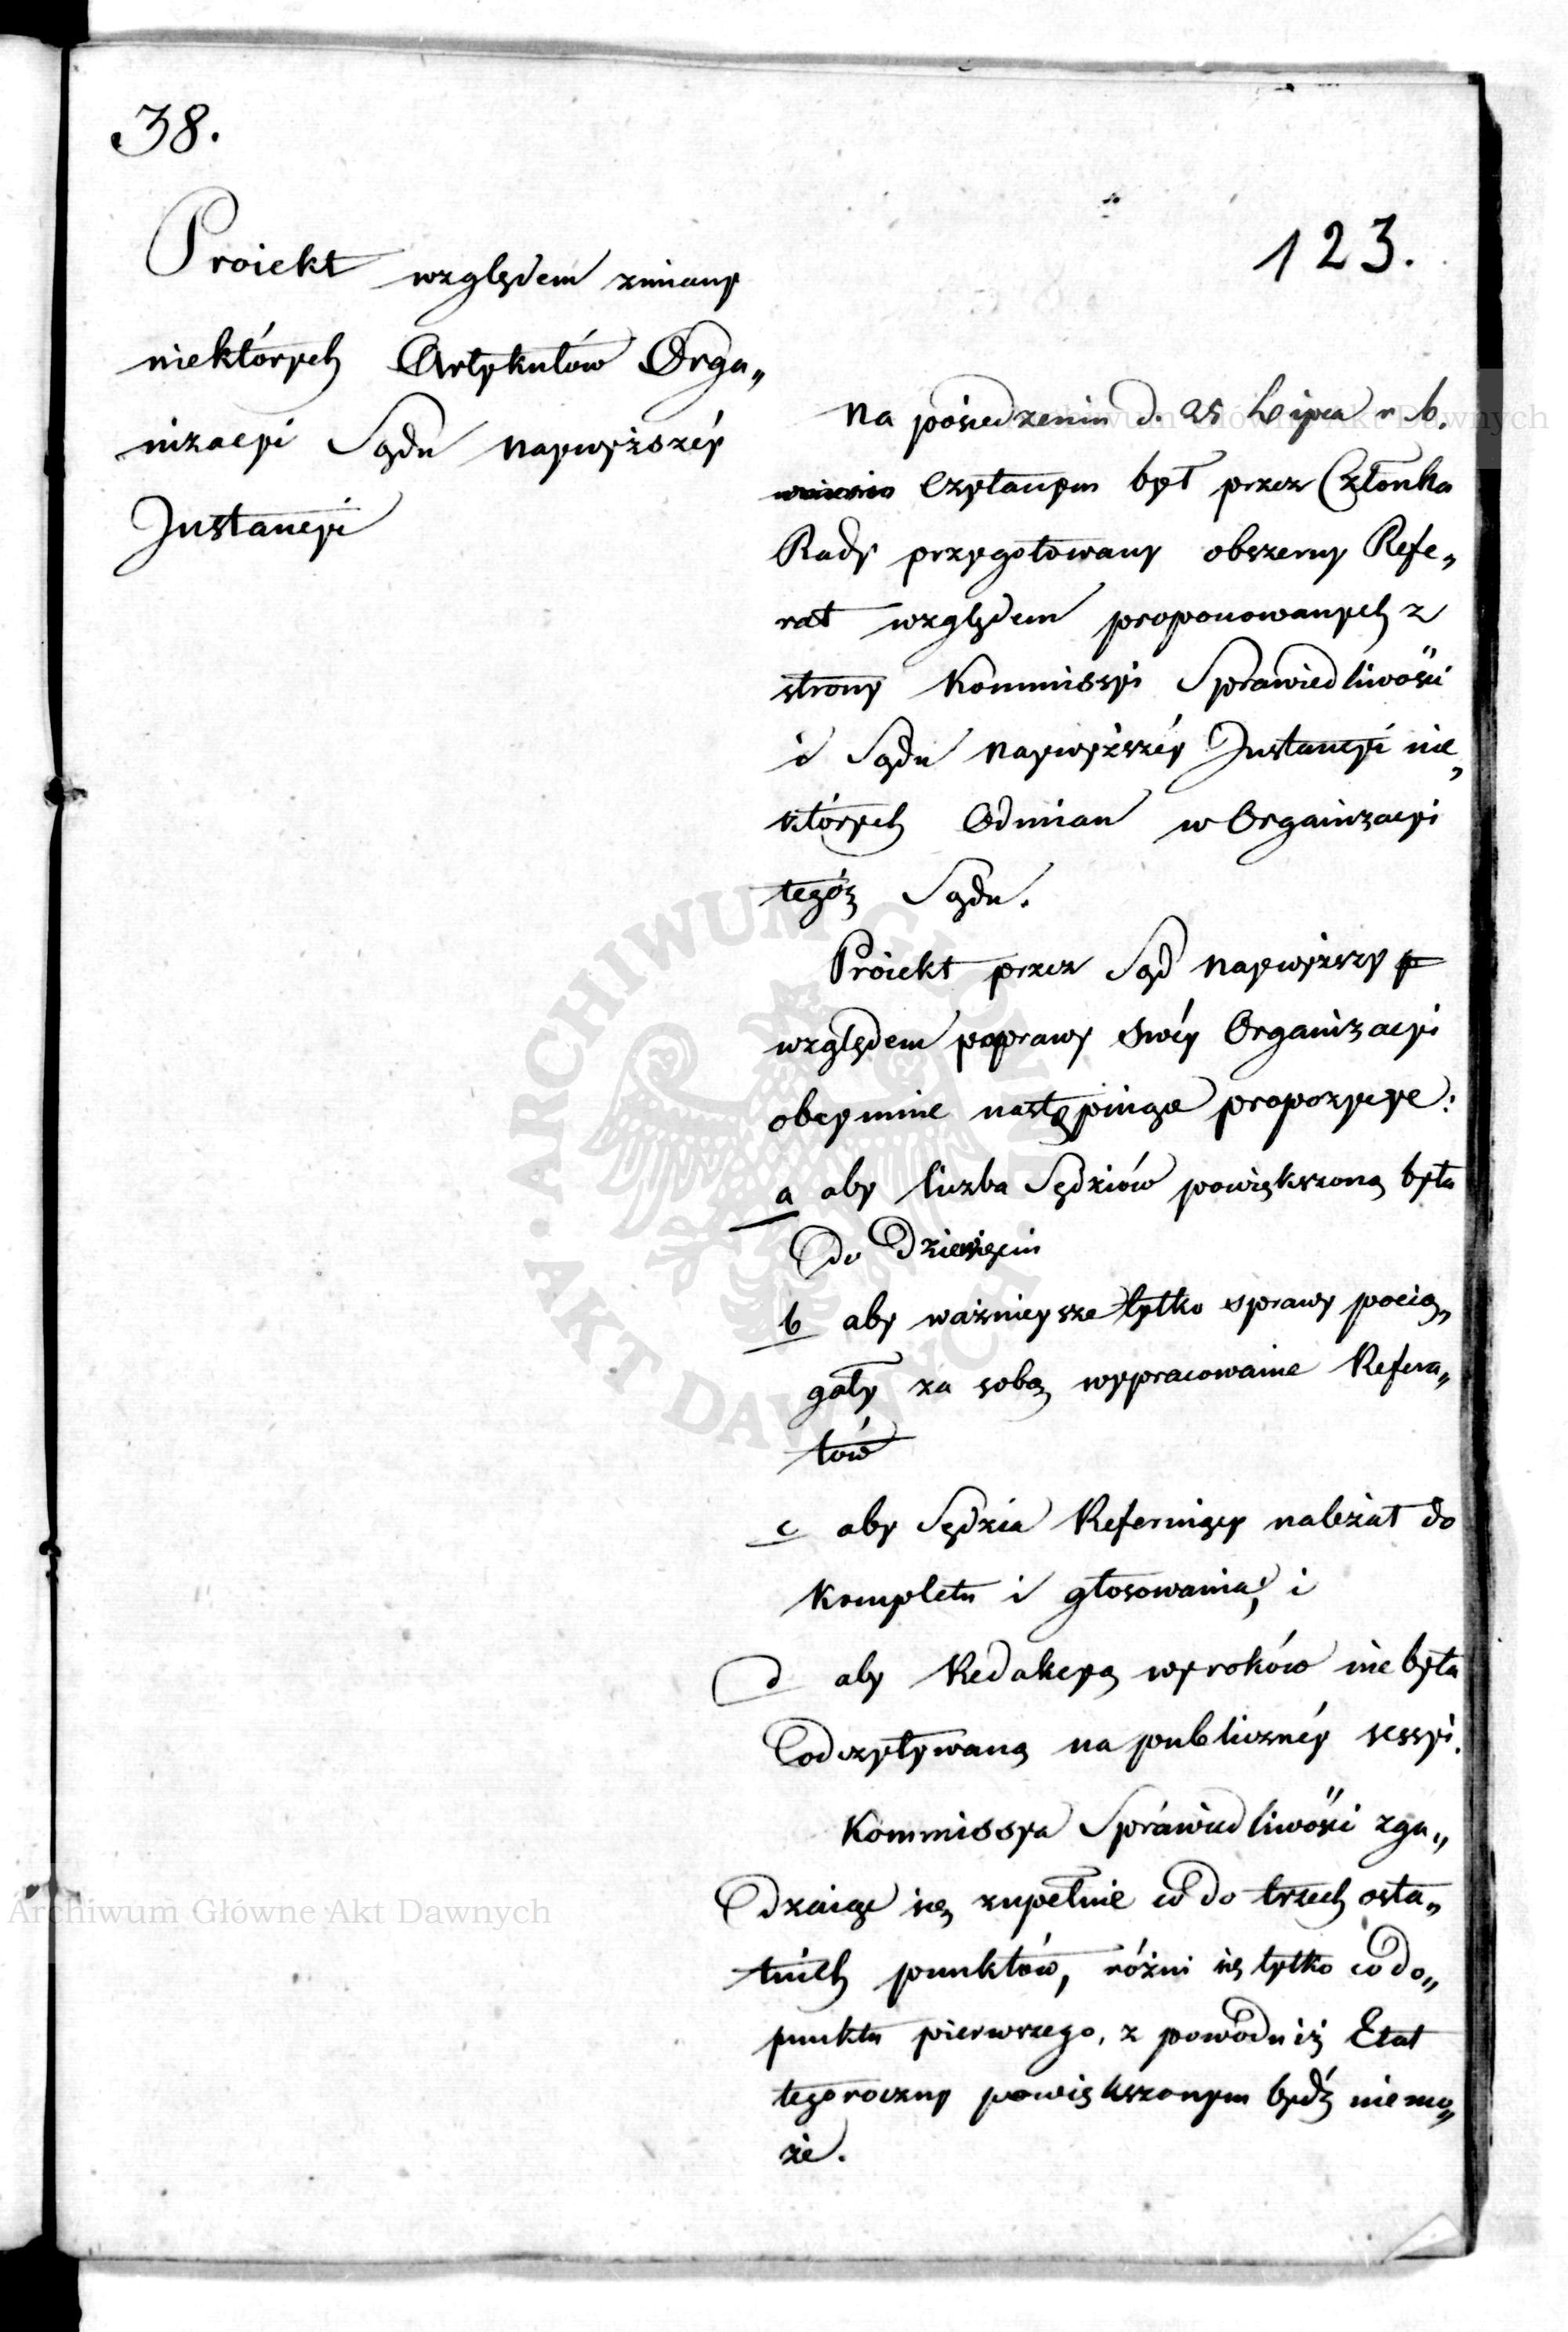 38.
123.
Proiekt względem zmiany
niektórych Artykułów Orga„
nizacyi Sądu Naywyższéy
Instancyi
Na posiedzeniu d. 25 Lipca r. b.
Czytanym był przez Członka
Rady przygotowany obszerny Refe„
rat względem proponowanych z
strony Kommissyi Sprawiedliwości
i Sądu Naywyższéy Instancyi nie„
których Odmian w Organizacyi
tegóż Sądu.
Proiekt przez Sąd Naywyższy
względem poprawy swéy Organizacyi
obeymuie następuiące propozycye:
a aby liczba Sędziów powiększoną była
do Dziewięciu
b aby ważnieysze tylko sprawy pocią„
gały za sobą wypracowanie Refera„
tów
c aby Sędzia Referuiący należał do
Kompletu i głosowania; i
d aby Redakcyą wyroków nie była
odczytywaną na publicznéy sessyi.
Kommissya Sprawiedliwości zga„
dzaiąc się zupełnie co do trzech osta„
tnich punktów, różni się tylko co do„
punktu pierwszego, z powodu iż Etat
tegoroczny powiększonym bydź niemo„
że.
Archiwum Główne Akt Dawnych
Archiwum Główne Akt Dawnych
ARCHIWUM GŁÓWNE
AKT DAWNYCH